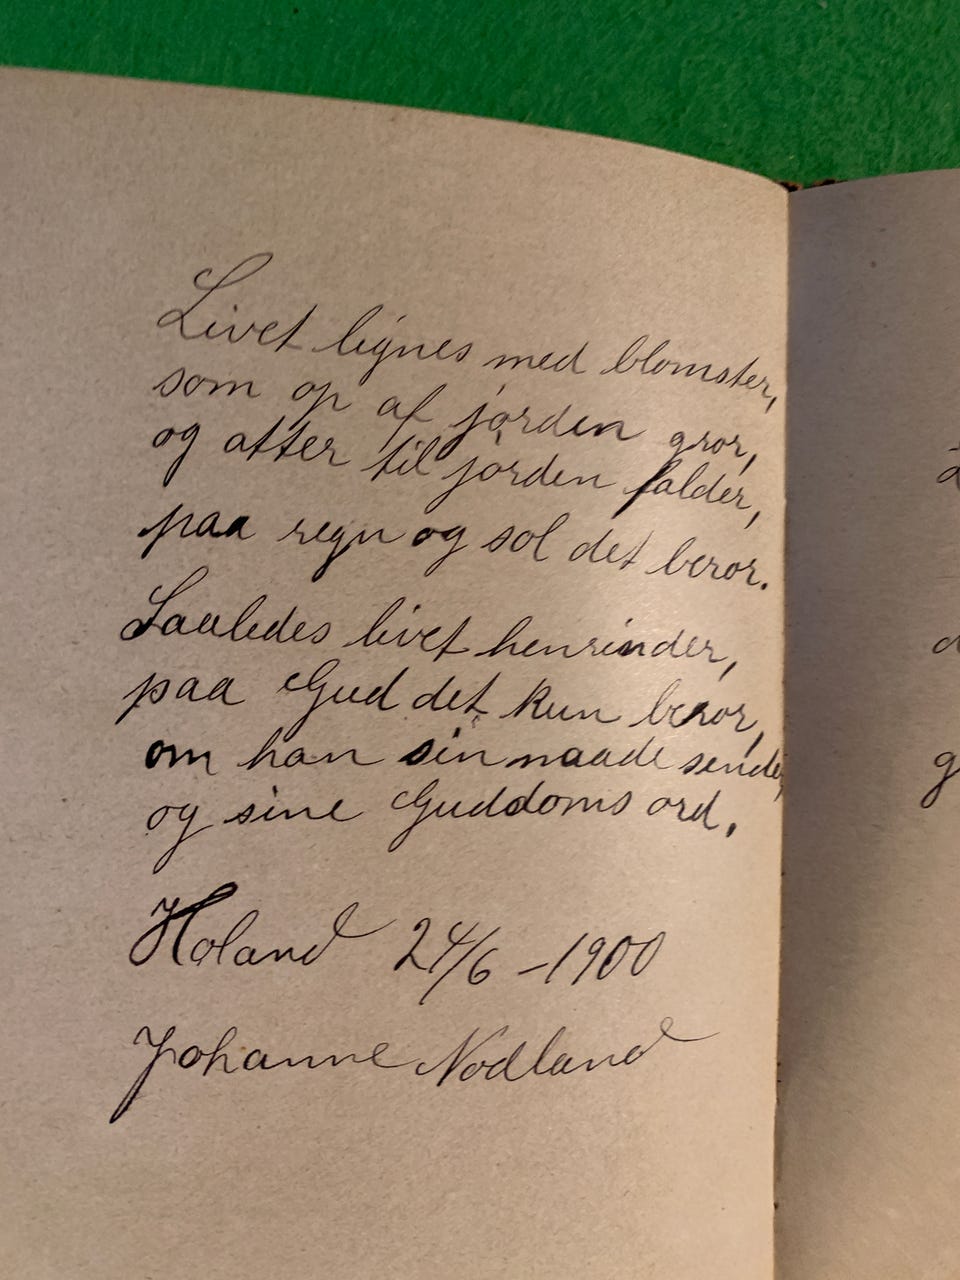 Livet lignes med blomster,
som op af jorden gror,
og atter til jorden falder,
paa regn og sol det beror.
Saaledes livet henrinder,
paa Gud det kun beror,
om han sin naade sender,
og sine Guddoms ord.
Holand 24/6 - 1900
Johanne Nodland